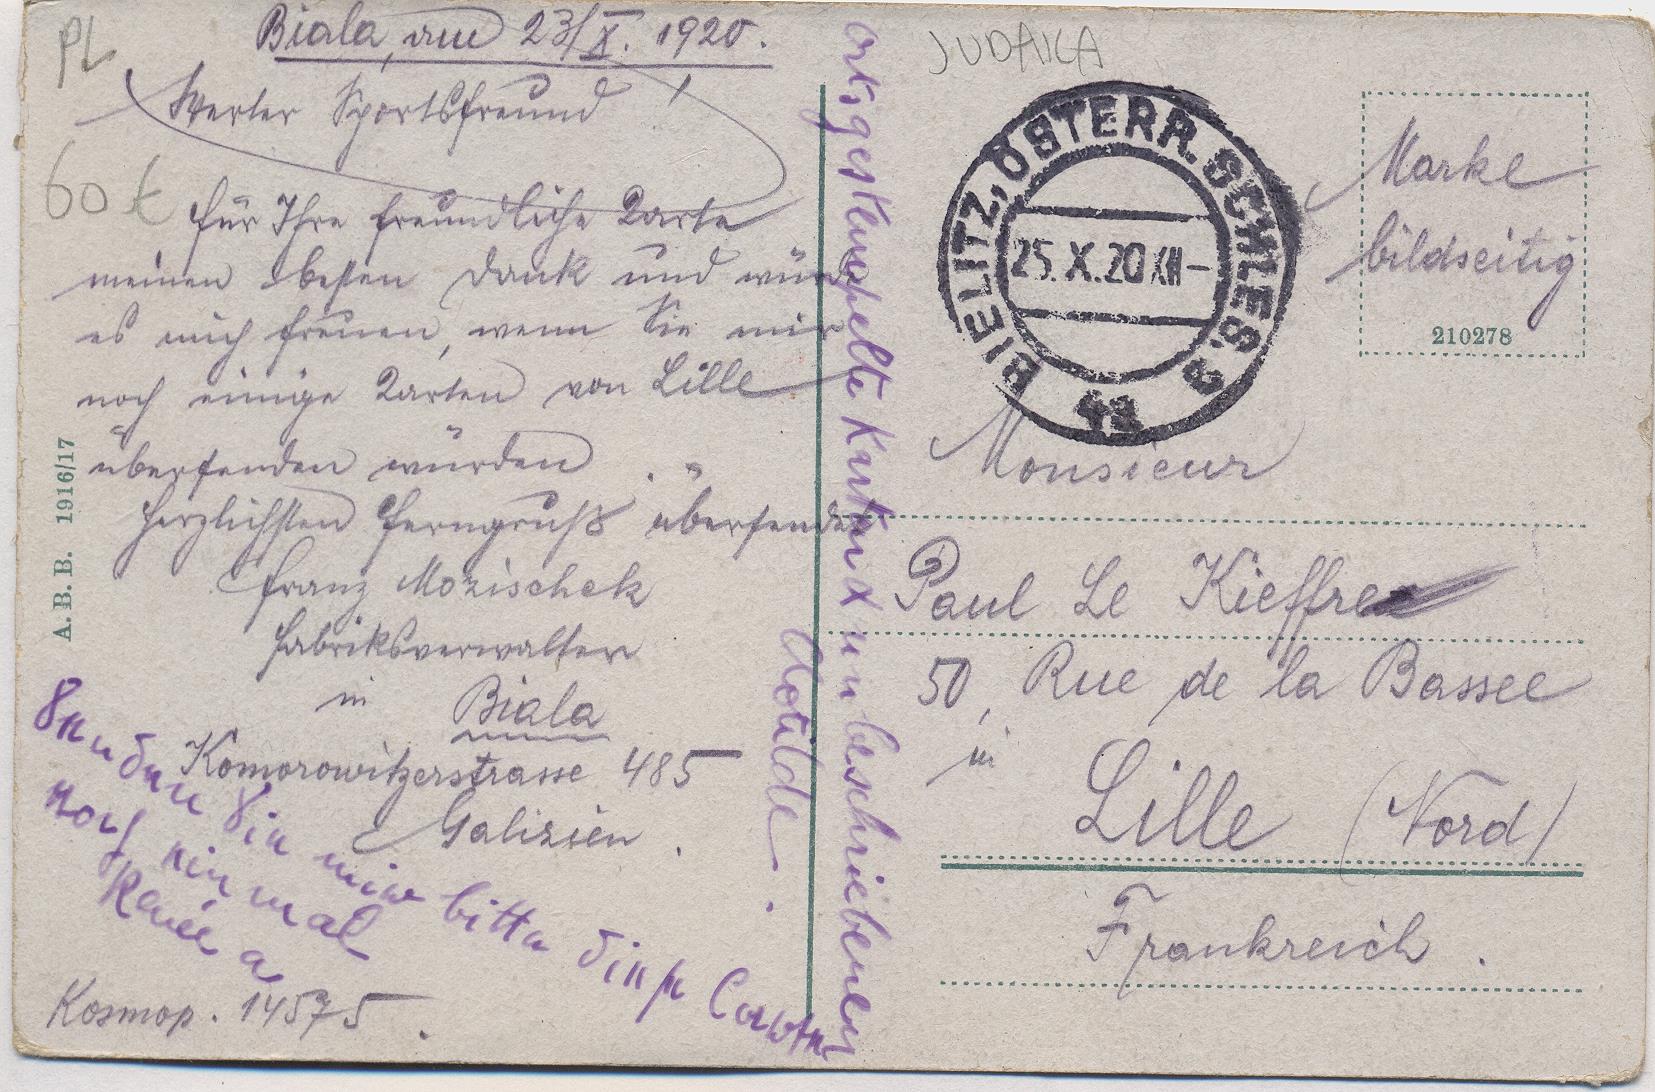 PL
Biala, am 23/X. 1920.
Werter Sportsfreund!
60 €
für Ihre freundliche Karte
meinen besten Dank und würde
es mich freuen, wenn Sie mir
noch einige Karten von Lille
übersenden würden.
Herzlichsten Ferngruß übersendet
Franz Mozischek
Fabriksverwalter
in Biala
Komorowitzerstrasse 485
Galizien.
Kosmop. 14575.
Senden Sie mir bitte diese Karten
noch einmal
Renée a
A. B. B. 1916/17
ortsgestempelte Karten x unbeschriebenen
Clotilde.
JUDAIKA
BIELITZ, ÖSTERR. SCHLES. 2
25. X. 20 XII-
4a
Marke
bildseitig
210278
Monsieur
Paul Le Kieffre
50, Rue de la Bassee
in
Lille (Nord)
Frankreich.